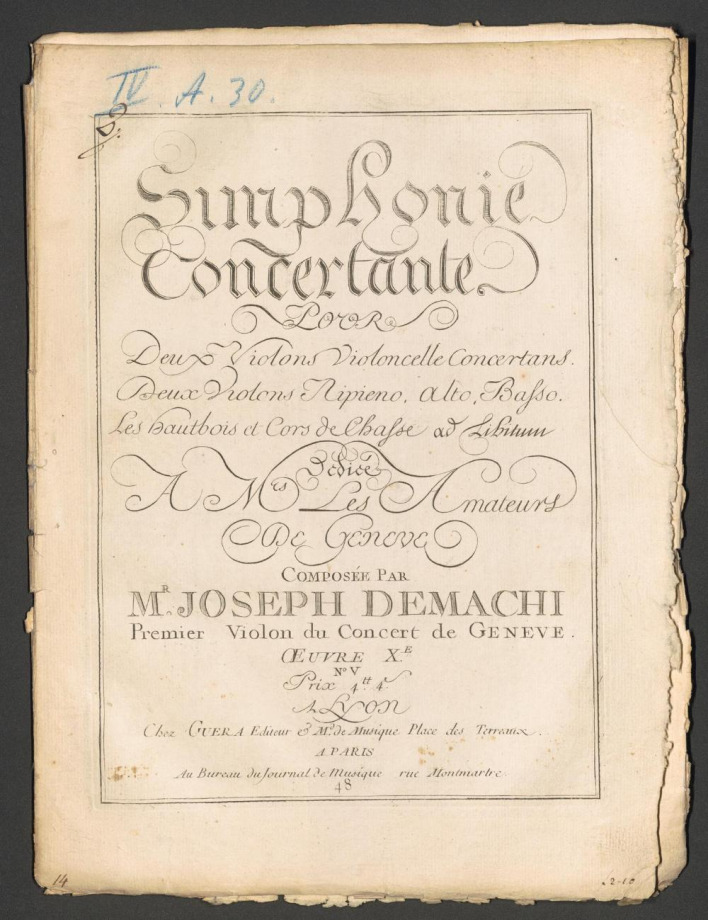 IV. A. 30.
Simphonie
Concertante
POUR
Deux Violons Violoncelle Concertans.
Deux Violons Ripieno, Alto, Basso.
Les Hautbois et Cors de Chasse ad Libitum
Dediée
A Mrs Les Amateurs
De Geneve
COMPOSÉE PAR
MR. JOSEPH DEMACHI
Premier Violon du Concert de GENEVE.
ŒUVRE X.E
No V
Prix 4tt 4s
A LYON
Chez GUERA Editeur & Md. de Musique Place des Terreaux.
A PARIS
Au Bureau du Journal de Musique rue Montmartre.
48
14